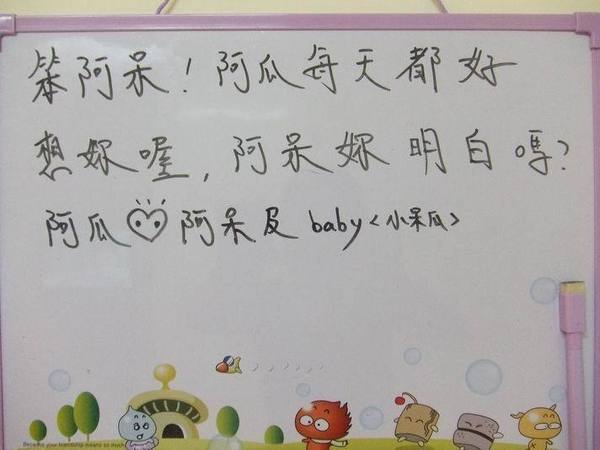 笨阿呆！阿瓜每天都好
想妳喔，阿呆妳明白嗎？
阿瓜♡阿呆及 baby<小呆瓜>
Because your friendship means so much